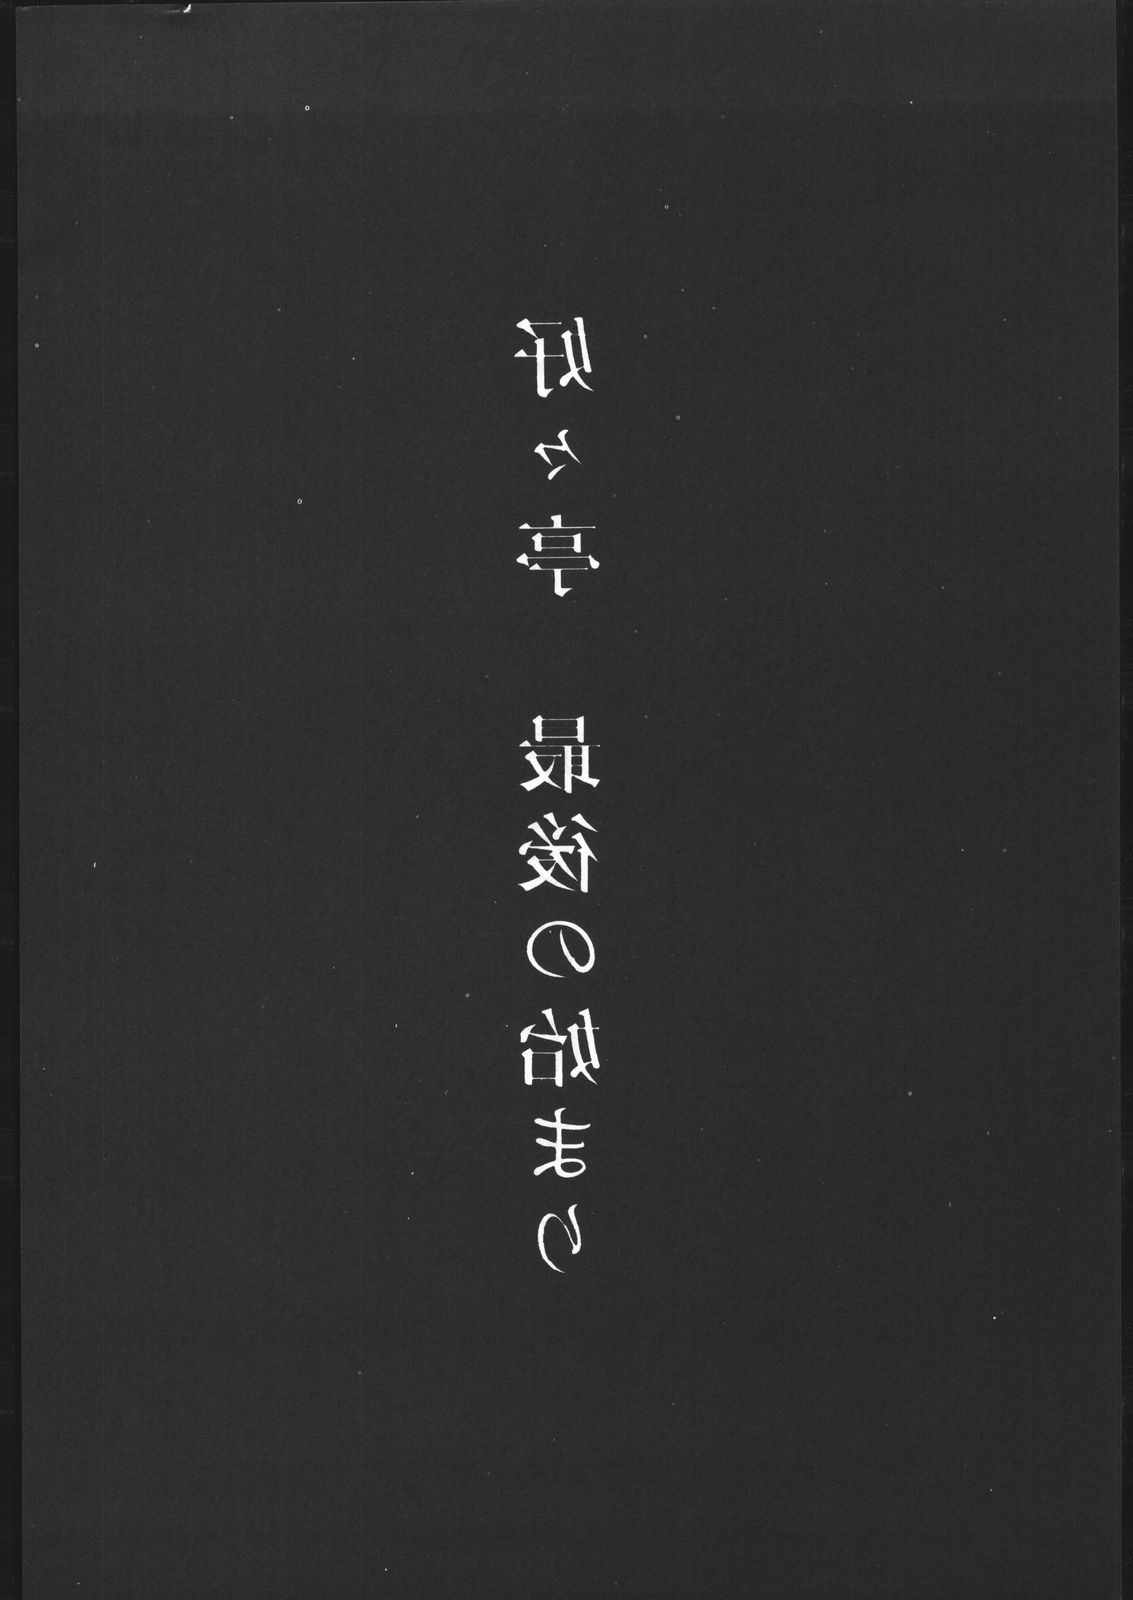 好々亭　最後の始まり